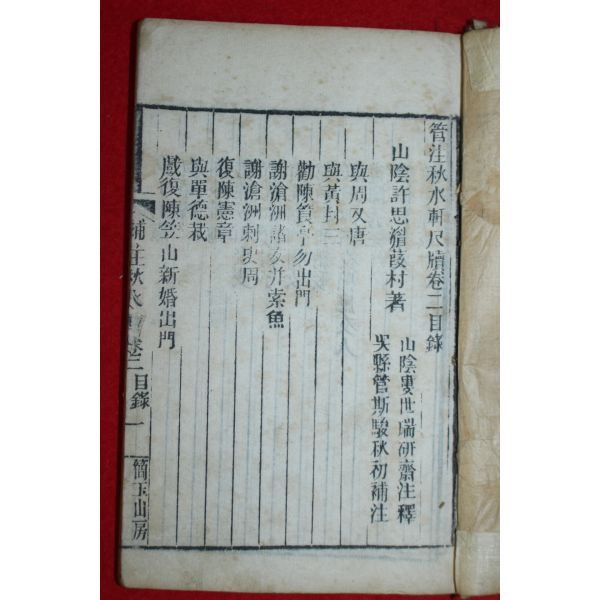 管注秋水軒尺牘卷二目錄
山陰許思湄葭村著
山陰婁世瑞研齋注釋
吳縣管斯駿秋初補注
與周又唐
與黃封三
勸陳笪亭勿出門
謝滄洲諸友并索魚
謝滄洲刺史周
復陳憲章
與單德栽
戲復陳笠山新婚出門
補注秋水
卷二 目錄 一
筒玉山房